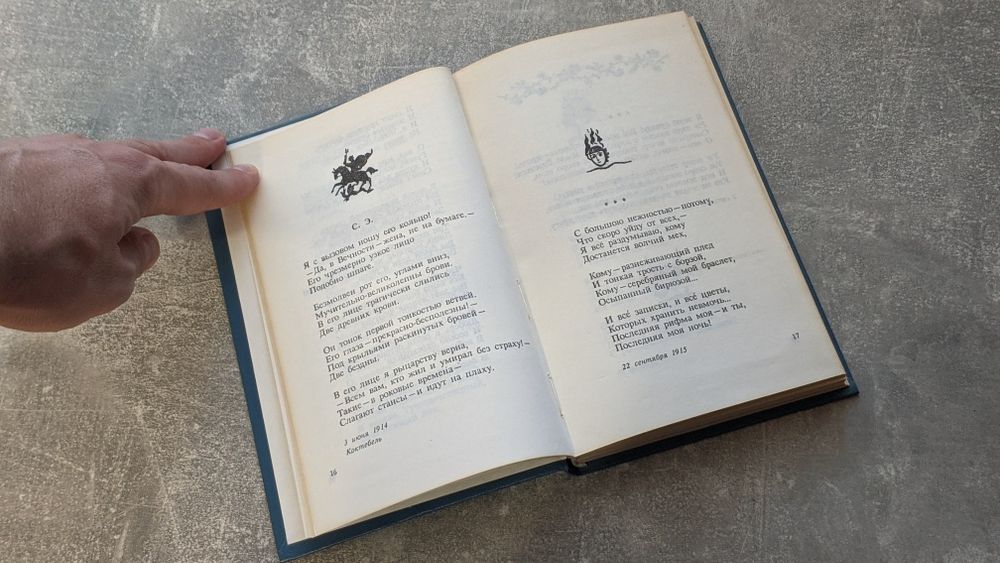 С. Э.
Я с вызовом ношу его кольцо!
—Да, в Вечности—жена, не на бумаге.—
Его чрезмерно узкое лицо
Подобно шпаге.
Безмолвен рот его, углами вниз,
Мучительно-великолепны брови.
В его лице трагически слились
Две древних крови.
Он тонок первой тонкостью ветвей.
Его глаза—прекрасно-бесполезны!—
Под крыльями раскинутых бровей—
Две бездны.
В его лице я рыцарству верна,
—Всем вам, кто жил и умирал без страху!—
Такие—в роковые времена—
Слагают стансы—и идут на плаху.
3 июня 1914
Коктебель
16
* * *
С большою нежностью—потому,
Что скоро уйду от всех,—
Я всё раздумываю, кому
Достанется волчий мех,
Кому—разнеживающий плед
И тонкая трость с борзой,
Кому—серебряный мой браслет,
Осыпанный бирюзой...
И всё записки, и всё цветы,
Которых хранить невмочь...
Последняя рифма моя—и ты,
Последняя моя ночь!
22 сентября 1915
17